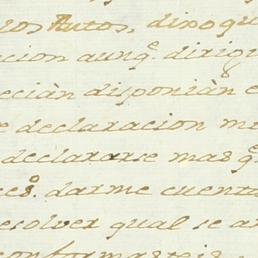 ros Autos, dixo qu
cion aunq.e dirig
ecian disponian e
e declaracion me
declararse mas q.
ces. darme cuenta
esolver qual se a
conformasteis